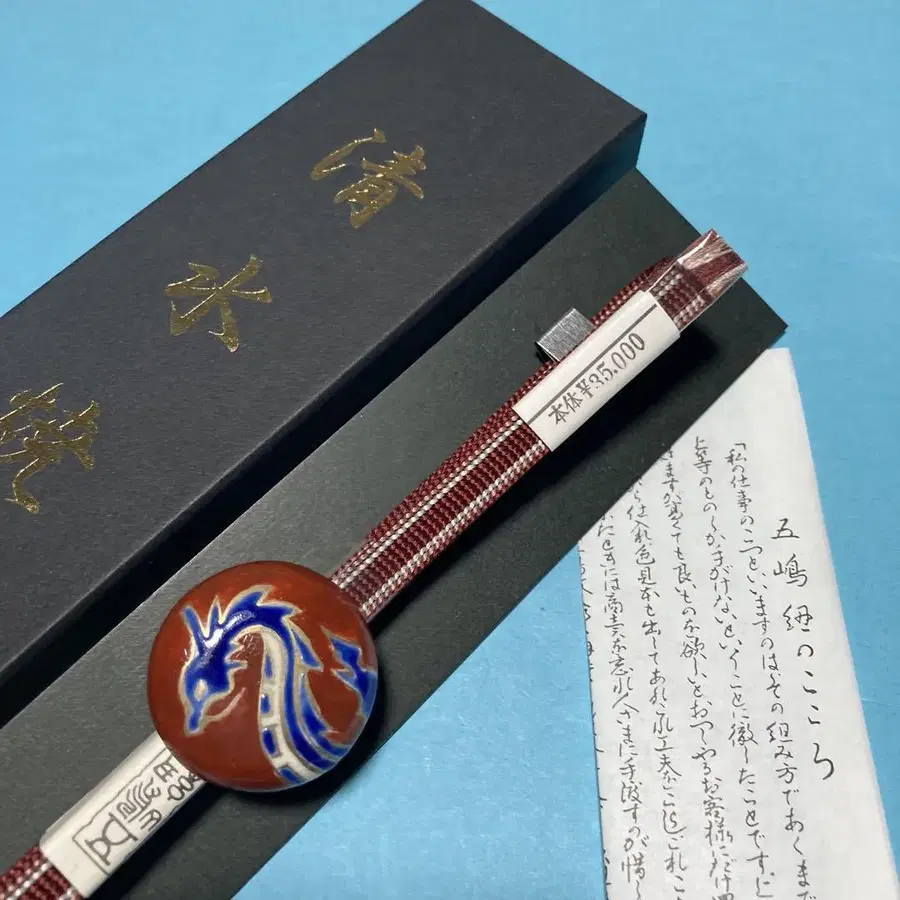 清水焼
本体¥35,000
五嶋紐のこころ
「私の仕事のこつといいますのはその組み方であくまで
上等のものしか手がけないということに徹したことです
ますが高くても良いものを欲しいとおっしゃるお客様にだけ
仕入れ色見本も出してあれこれ工夫をこらし
には商売を忘れ人さまに手渡すのが惜し